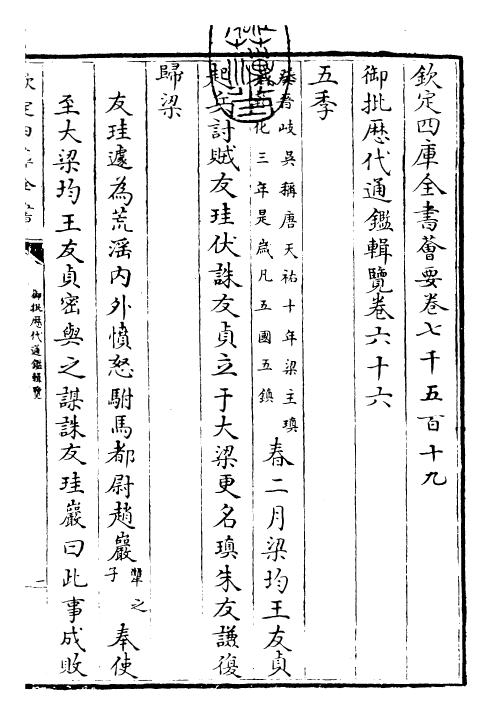 欽定四庫全書薈要卷七千五百十九
御批歷代通鑑輯覽卷六十六
五季
晉岐吳稱唐天祐十年梁主瑱
化三年是歲凡五國五鎮
春二月梁均王友貞
起兵討賊友珪伏誅友貞立于大梁更名瑱朱友謙復
歸梁
友珪遽為荒滛内外憤怒駙馬都尉趙巖犨之子奉使
至大梁均王友貞密與之謀誅友珪巖曰此事成敗
欽定四庫全書
御批歷代通鑑輯覽
二